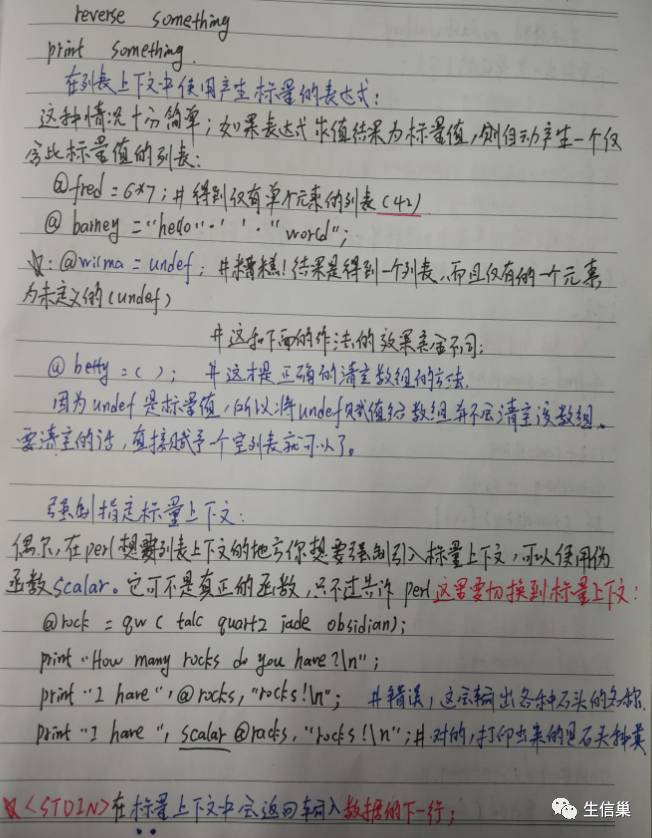 reverse something
print something.
在列表上下文中使用产生标量的表达式:
这种情况十分简单;如果表达式求值结果为标量值,则自动产生一个仅
含此标量值的列表:
@fred = 6*7; # 得到仅有单个元素的列表(42)
@ barney = "hello" . ' ' . "world";
@wilma = undef; #糟糕!结果是得到一个列表,而且仅有的一个元素
为未定义的(undef)
#这和下面的作法的效果完全不同:
@ betty = ( ); #这才是正确的清空数组的方法.
因为undef是标量值,所以将undef赋值给数组并不会清空该数组。
要清空的话,直接赋予个空列表就可以了。
强制指定标量上下文:
偶尔,在perl想要列表上下文的地方你想要强制引入标量上下文,可以使用伪
函数scalar。它可不是真正的函数,只不过告诉perl这里要切换到标量上下文:
@rock = qw( talc quartz jade obsidian);
print "How many rocks do you have?\n";
print "I have ", @rocks, "rocks!\n"; #错误,这会输出各种石头的名称.
print "I have ", scalar @rocks, "rocks!\n"; #对的,打印出来的是石头种类
<STDIN>在标量上下文中会返回输入数据的下一行;
生信巢